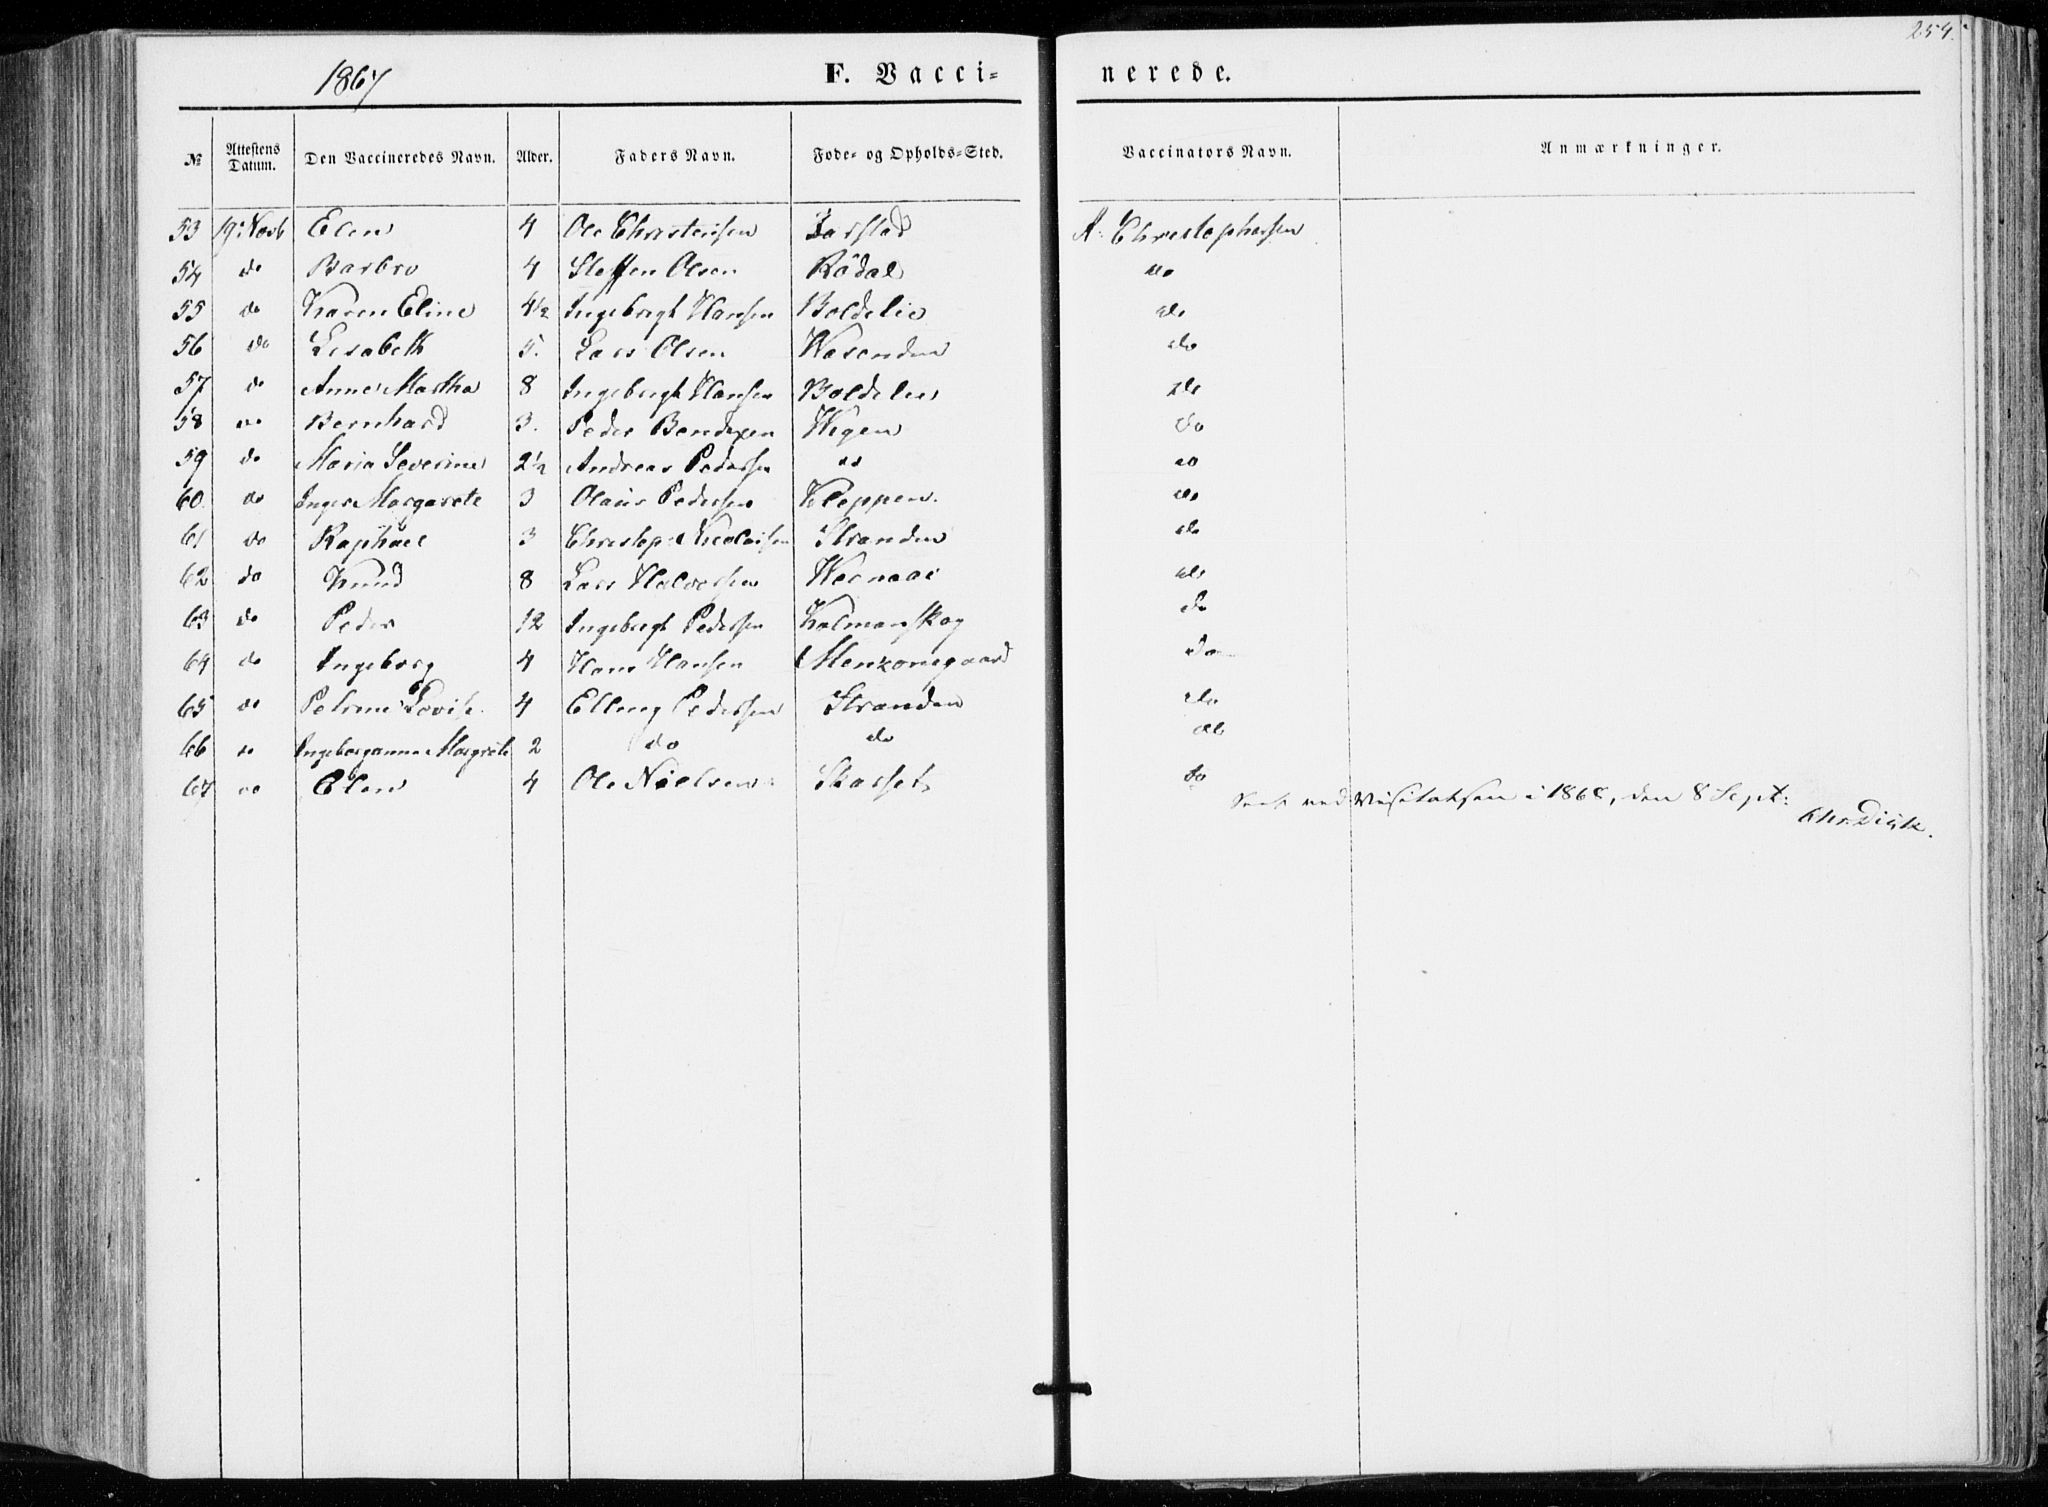 254.
1867
F. Vacci- nerede.
№ Attestens Datum. Den Vaccineredes Navn. Alder. Faders Navn. Føde- og Opholds-Sted. Vaccinators Navn. Anmærkninger.
53 19: Novb Elen 4 Ole Christensen A. Christophersen
54 do Barbro 4 Steffen Olsen Rödal do
55 do Karen Eline 4½ Ingebrigt Hansen Boldelie do
56 do Lisabeth 5. Lars Olsen Wasenden do
57 do Anne Martha 8 Ingebrigt Hansen Boldelie do
58 do Bernhard 3. Peder Bendixen Wegen do
59 do Maria Severine 2½ Andreas Pedersen do do
60 do Inger Margarete 3 Olaus Pedersen Kleppen. do
61 do Raphael 3 Christop: Nicolaisen Stranden do
62 do Knud 8 Lars Halvorsen do
63 do Peder 12 Ingebrigt Pedersen Kalmanskog do
64 do Ingeborg 4 Hans Hansen do
65 do Petrine Lovise. 4 Elling Pedersen Stranden do
66 do Ingeborganna Margrete 2 do do do
67 do Elen 4 Ole Nielsen Skarset do
Seet ved Visitatsen i 1868, den 8 Sept: